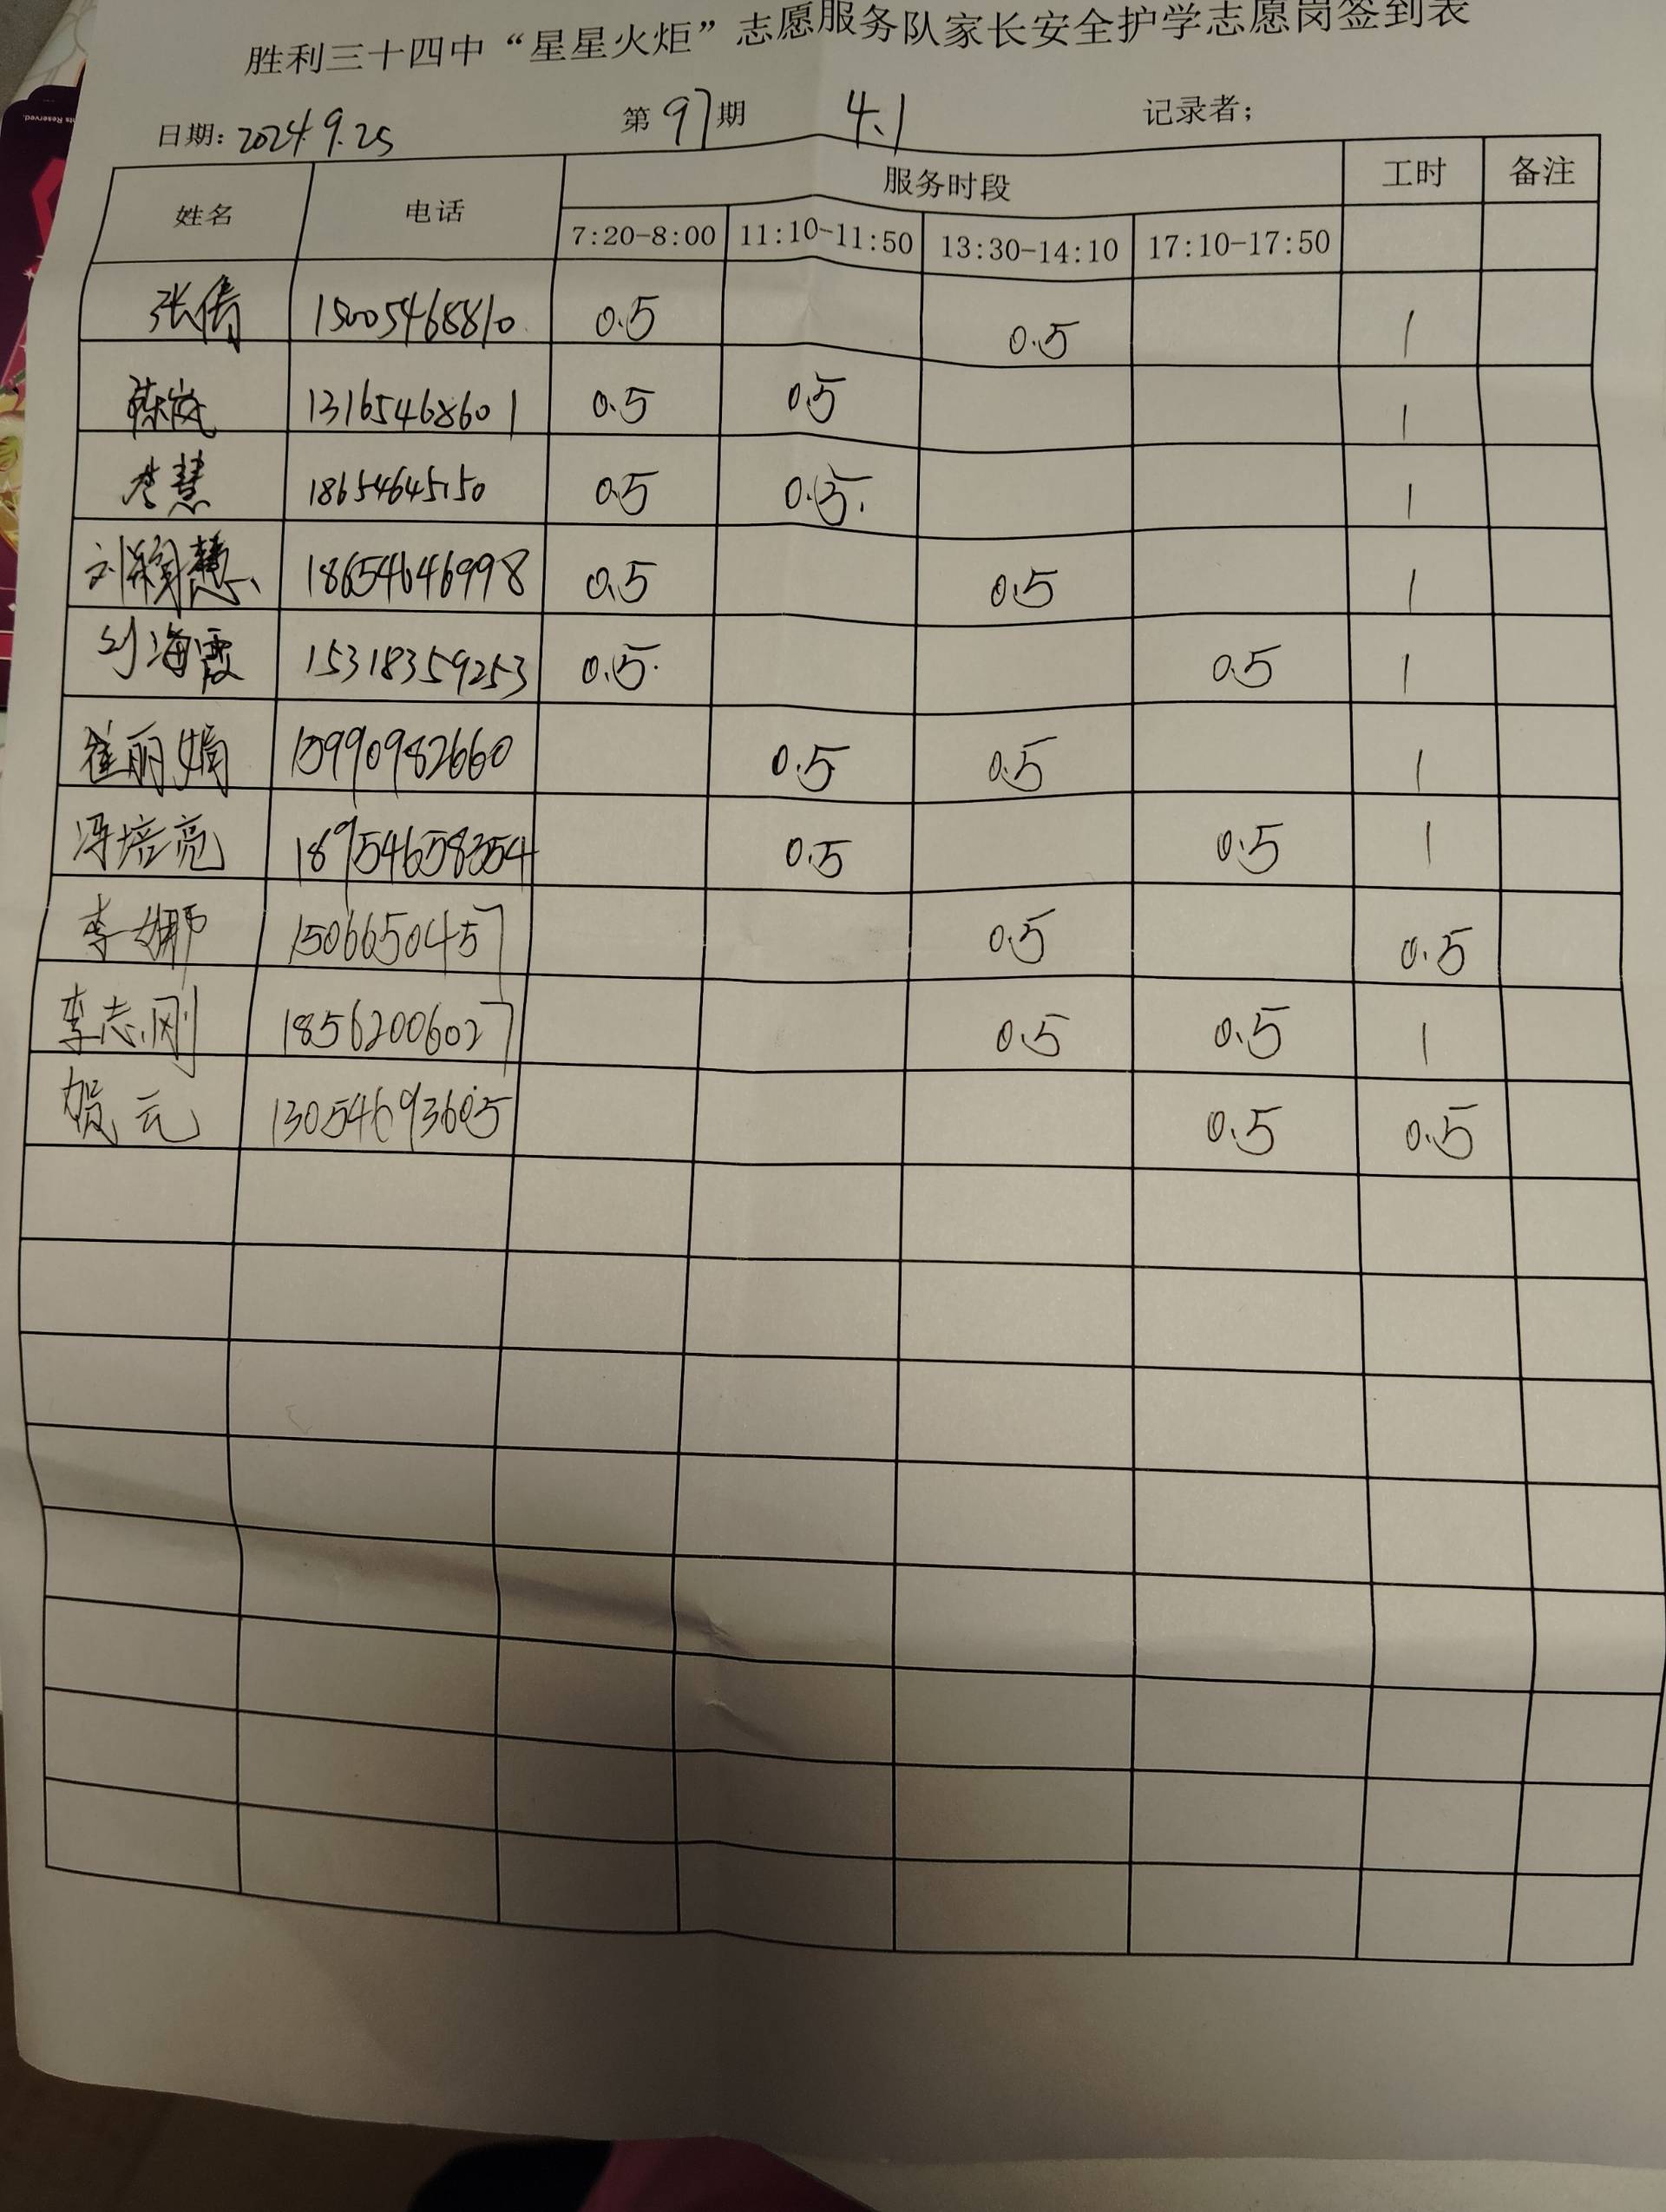 胜利三十四中“星星火炬”志愿服务队家长安全护学志愿岗签到表
日期: 2024.9.25 第97期 4.1 记录者;
姓名 电话 服务时段 工时 备注
7:20-8:00 11:10-11:50 13:30-14:10 17:10-17:50
张倩 15005468810 0.5 0.5 1
陈岚 13165468601 0.5 0.5 1
李慧 18654645150 0.5 0.5 1
刘颖慧 18654646998 0.5 0.5 1
刘海霞 15318359253 0.5 0.5 1
崔丽娟 15990982660 0.5 0.5 1
冯培亮 18954658354 0.5 0.5 1
李娜 1506650457 0.5 0.5
李志刚 18562006027 0.5 0.5 1
贺元 13054693605 0.5 0.5